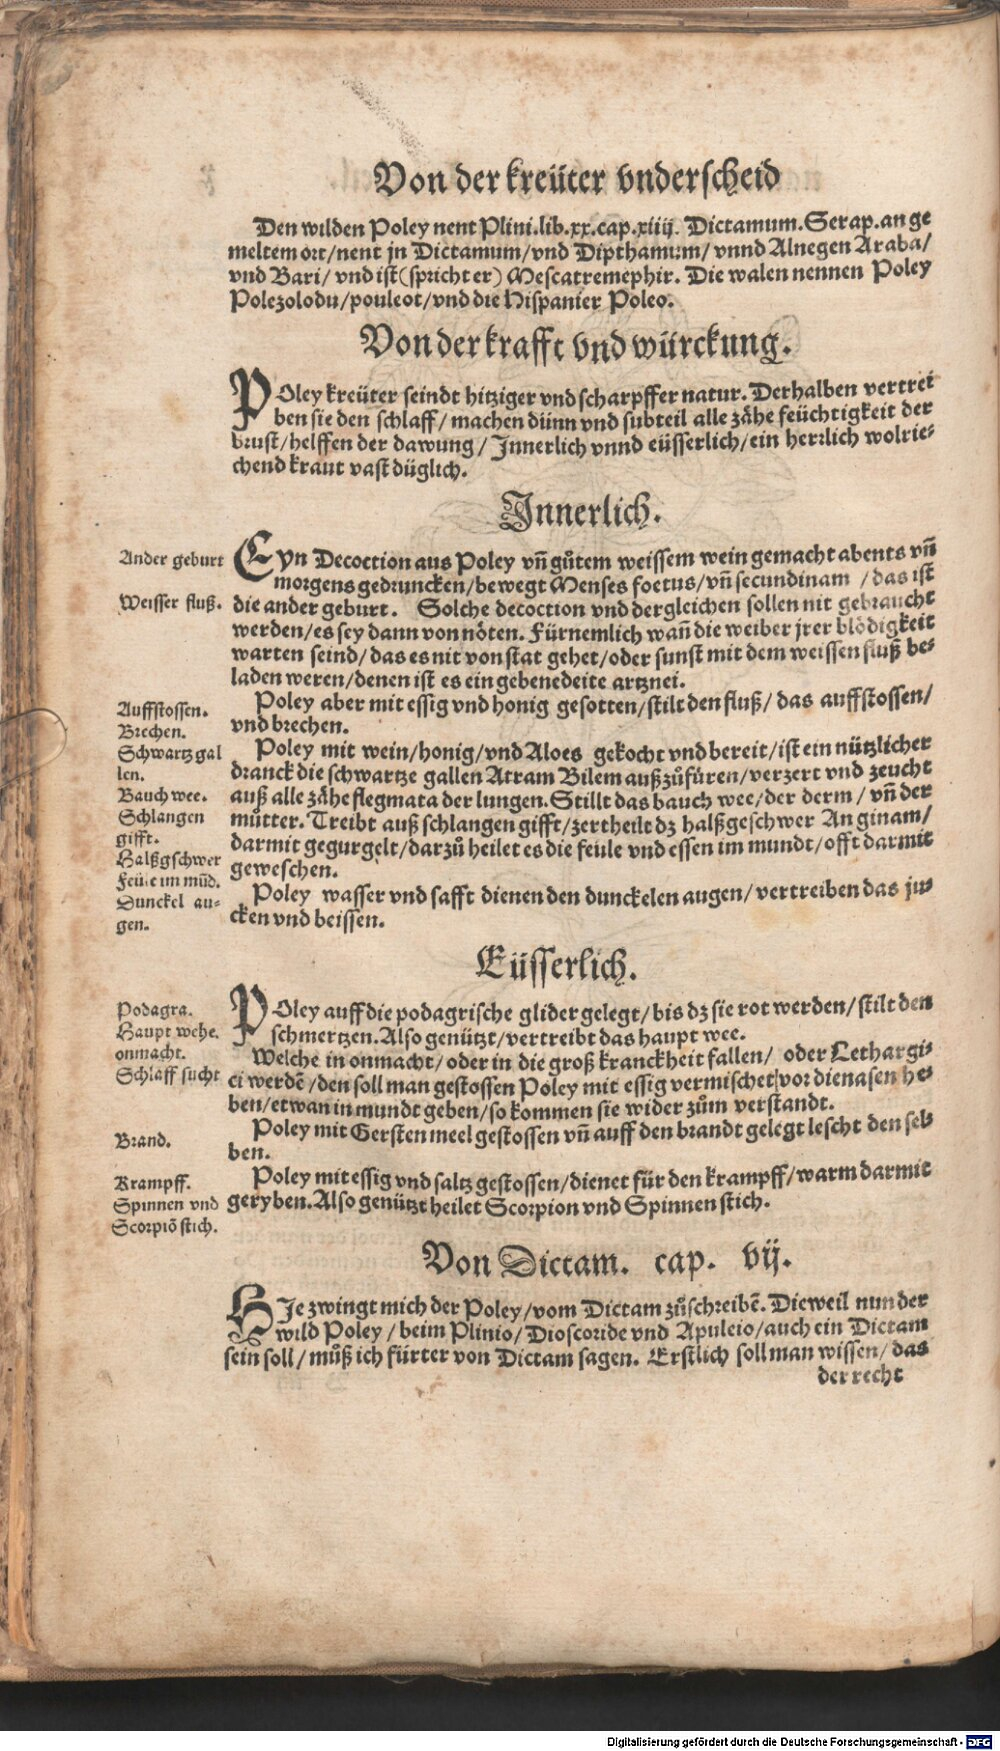 Von der kreüter vnderscheid
Den wilden Poley nent Plini.lib.xx.cap.xiiij. Dictamum. Serap. an ge
meltem ort/nent jn Dictamum/vnd Dipthamum/vnnd Alnegen Araba/
vnd Bari/vnd ist (spricht er) Mescatremephir. Die walen nennen Poley
Polezolodu/pouleot/vnd die Hispanier Poleo.
Von der krafft vnd würckung.
POley kreüter seindt hitziger vnd scharpffer natur. Derhalben vertrei
ben sie den schlaff/machen dünn vnd subteil alle zähe feüchtigkeit der
brust/helffen der dawung/Innerlich vnnd eüsserlich/ein herrlich wolrie-
chend kraut vast düglich.
Innerlich.
Ander geburt
Weisser fluß.
EYn Decoction aus Poley vñ gůtem weissem wein gemacht abents vñ
morgens gedruncken/bewegt Menses foetus/vñ secundinam/das ist
die ander geburt. Solche decoction vnd dergleichen sollen nit gebraucht
werden/es sey dann von nöten. Fürnemlich wañ die weiber jrer blödigkeit
warten seind/das es nit von stat gehet/oder sunst mit dem weissen fluß be-
laden weren/denen ist es ein gebenedeite artznei.
Auffstossen.
Brechen.
Schwartz gal
len.
Bauch wee.
Schlangen
gifft.
Halßgschwer
Feüle im mūd.
Dunckel au-
gen.
Poley aber mit essig vnd honig gesotten/stilt den fluß/das auffstossen/
vnd brechen.
Poley mit wein/honig/vnd Aloes gekocht vnd bereit/ist ein nützlicher
dranck die schwartze gallen Atram Bilem außzůfüren/verzert vnd zeucht
auß alle zähe flegmata der lungen. Stillt das bauch wee/der derm/vñ der
můtter. Treibt auß schlangen gifft/zertheilt dz halßgeschwer Anginam/
darmit gegurgelt/darzů heilet es die feule vnd essen im mundt/offt darmit
geweschen.
Poley wasser vnd safft dienen den dunckelen augen/vertreiben das ju-
cken vnd beissen.
Eüsserlich.
Podagra.
Haupt wehe.
onmacht.
Schlaff sucht
POley auff die podagrische glider gelegt/bis dz sie rot werden/stilt den
schmertzen. Also genützt/vertreibt das haupt wee.
Welche in onmacht/oder in die groß kranckheit fallen/oder Lethargi-
ci werdē/den soll man gestossen Poley mit essig vermischet vor die nasen he-
ben/etwan in mundt geben/so kommen sie wider zům verstandt.
Brand.
Poley mit Gersten meel gestossen vñ auff den brandt gelegt lescht den sel-
ben.
Krampff.
Spinnen vnd
Scorpiō stich.
Poley mit essig vnd saltz gestossen/dienet für den krampff/warm darmit
geryben. Also genützt heilet Scorpion vnd Spinnen stich.
Von Dictam. cap. vij.
HIe zwingt mich der Poley/vom Dictam zůschreibē. Dieweil nun der
wild Poley/beim Plinio/Dioscoride vnd Apuleio/auch ein Dictam
sein soll/můß ich fürter von Dictam sagen. Erstlich soll man wissen/das
der recht
Digitalisierung gefördert durch die Deutsche Forschungsgemeinschaft - DFG